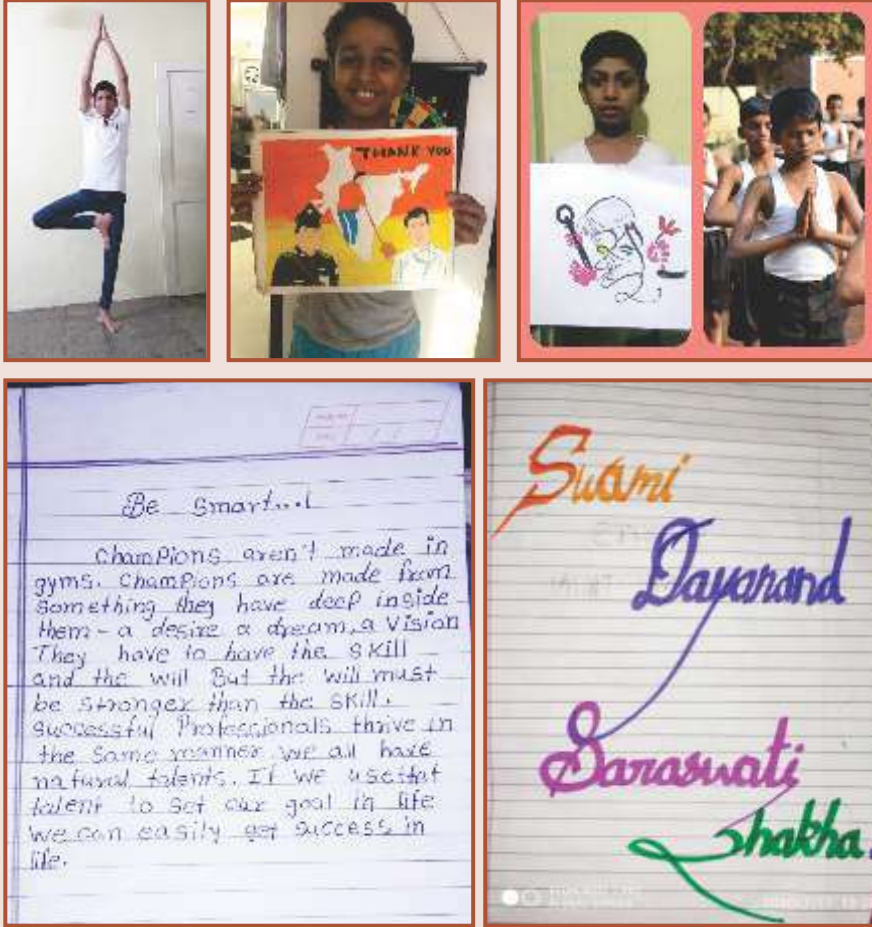 THANK YOU
Be Smart...!
ChamPions aren't made in
gyms. ChamPions are made from
something they have deep inside
them - a desire a dream, a Vision
They have to have the skill
and the will But the will must
be stronger than the skill.
successful Professionals thrive in
the same manner we all have
natural talents. If we use that
talent to set our goal in life
we can easily get success in
life.
Swami
Dayanand
Saraswati
Shakha.